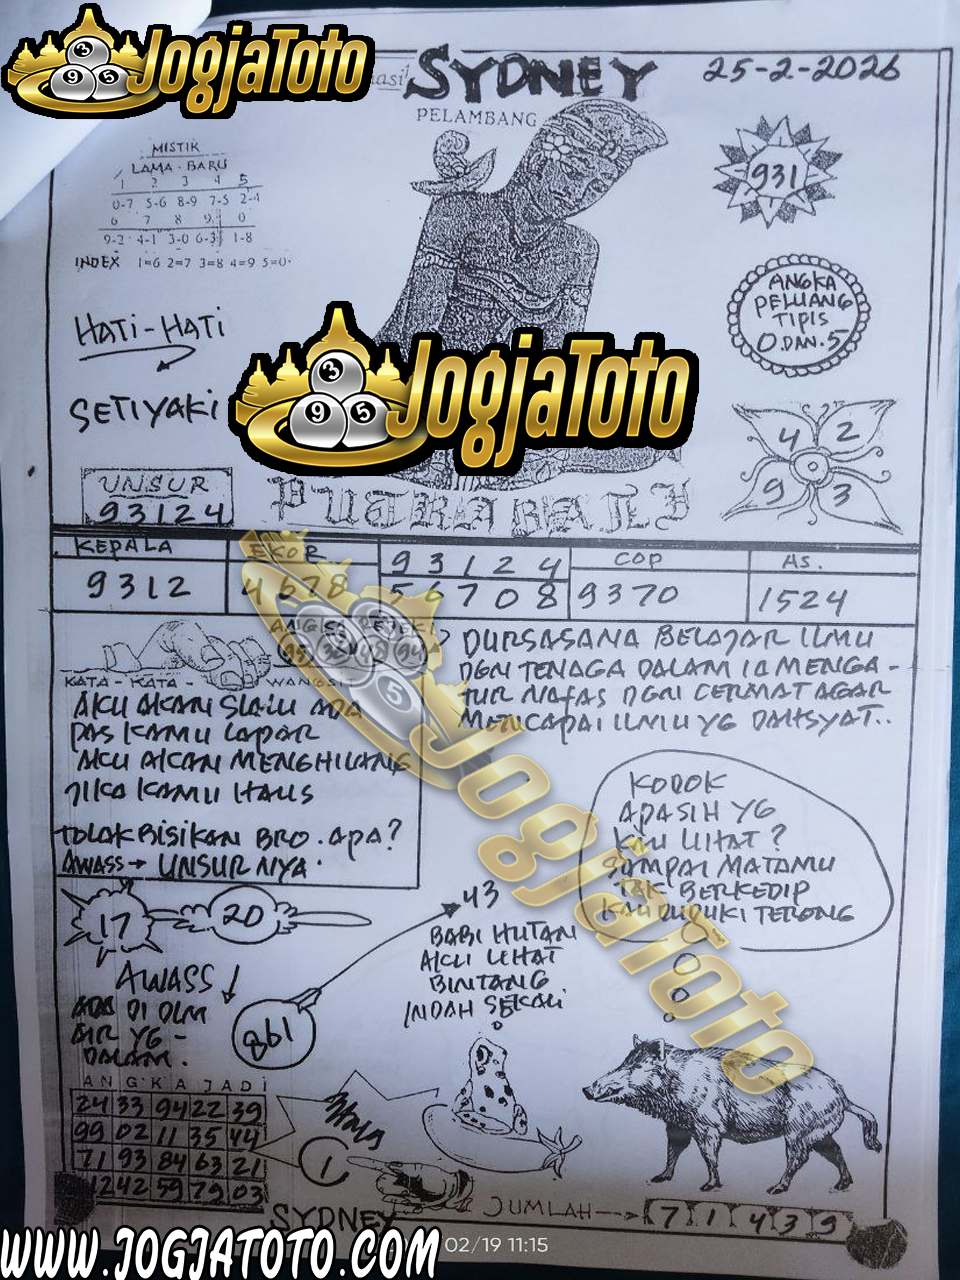 JogjaToto
SYDNEY
25-2-2026
PELAMBANG
MISTIK
LAMA - BARU
1 2 3 4 5
0-7 5-6 8-9 7-5 2-4
6 7 8 9 0
9-2 4-1 3-0 6-3 1-8
INDEX 1=6 2=7 3=8 4=9 5=0
931
ANGKA
PELUANG
TIPIS
0 DAN. 5
HATI-HATI
SETIYAKI
JogjaToto
4 2
9 3
UNSUR
93124
PUTRA BALI
KEPALA EKOR 9 3 1 2 4 COP AS.
9312 4678 5 6 7 0 8 9370 1524
KATA - KATA - WANGSIT
AKU AKAN SLALU ADA
PAS KAMU LAPAR
AKU AKAN MENGHILANG
JIKA KAMU HAUS
TOLAK BISIKAN BRO. APA?
AWASS → UNSURNYA.
DURSASANA BELAJAR ILMU
DGN TENAGA DALAM IA MENGA-
TUR NAFAS DGN CERMAT AGAR
MENCAPAI ILMU YG DAHSYAT..
JogjaToto
KODOK
APASIH YG
KAU LIHAT?
SAMPAI MATAMU
TAK BERKEDIP
KAU DUDUKI TERONG
17
20
43
BABI HUTAN
AKU LIHAT
BINTANG
INDAH SEKALI
AWASS
ADA DI DLM
AIR YG -
DALAM.
861
ANGKA JADI
24 33 94 22 39
99 02 11 35 44
71 93 84 63 21
12 42 59 79 03
1
SYDNEY
JUMLAH → 7 1 4 3 9
WWW.JOGJATOTO.COM
02/19 11:15